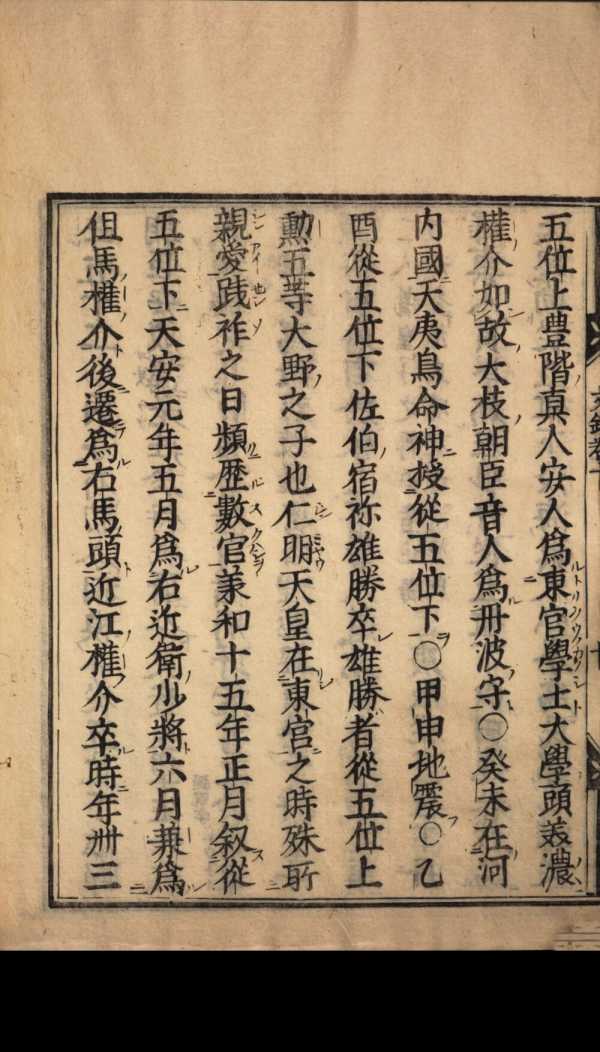 五位上豊階真人安人爲東宮學士大學頭美濃
權介如故大枝朝臣音人爲丹波守〇癸未在河
内國天夷鳥命神授從五位下〇甲申地震〇乙
酉從五位下佐伯宿祢雄勝卒雄勝者從五位上
勲五等大野之子也仁明天皇在東宮之時殊所
親愛踐祚之日頻歴數官羕和十五年正月叙從
五位下天安元年五月爲右近衛少將六月兼爲
但馬權介後遷爲右馬頭近江權介卒時年卌三